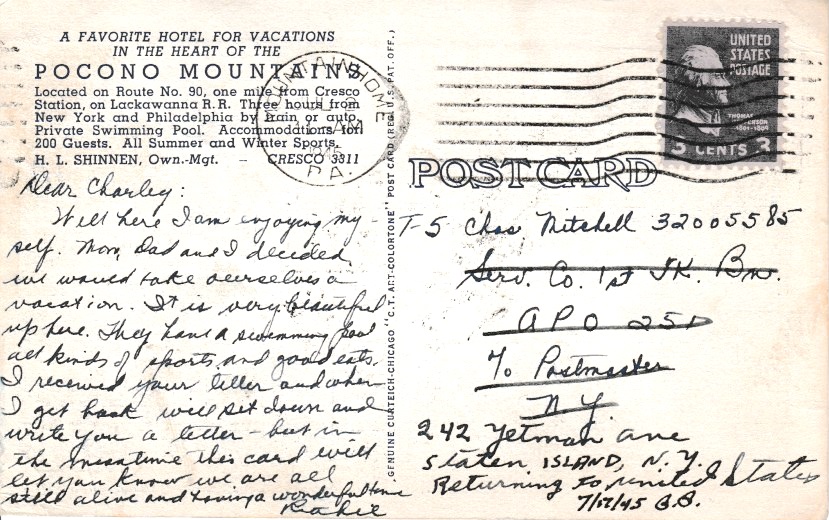 A FAVORITE HOTEL FOR VACATIONS
IN THE HEART OF THE
POCONO MOUNTAINS
Located on Route No. 90, one mile from Cresco
Station, on Lackawanna R.R. Three hours from
New York and Philadelphia by train or auto.
Private Swimming Pool. Accommodations for
200 Guests. All Summer and Winter Sports.
H. L. SHINNEN, Own.-Mgt. – CRESCO 3311
Dear Charley:
Well here I am enjoying my-
self. Mom, Dad and I decided
we would take ourselves a
vacation. It is very beautiful
up here. They have a swimming pool
all kinds of sports and good eats.
I received your letter and when
I get back will sit down and
write you a letter - but in
the meantime this card will
let you know we are all
still alive and having a wonderful time
GENUINE CURTEICH-CHICAGO "C.T. ART-COLORTONE" POST CARD (REG. U.S. PAT. OFF.)
MOUNTAINHOME
PA.
UNITED
STATES
POSTAGE
THOMAS
JEFFERSON
1801-1809
3 CENTS 3
POST CARD
T-5 Chas Mitchell 32005585
Serv. Co. 1st TK. Bn.
APO 251
c/o Postmaster
N.Y.
242 Yetman Ave
Staten ISLAND, N.Y.
Returning to United States
7/17/45 B.B.